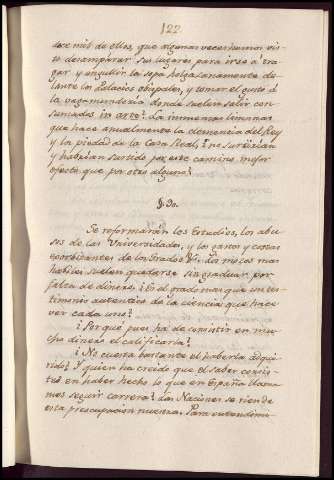 122
doce mil de ellos, que algunas veces hemos vis-
to desamparar sus lugares para irse á tra-
gar y engullir la sopa holgazanamente de-
lante los Palacios obispales, y tomar el gusto á
la vagamundería donde suelen salir con-
sumados in arte? La inmensas limosnas
que hace anualmente la clemencia del Rey
y la piedad de la Casa Real, ¿no surtirían
y habrían surtido por este camino mejor
efecto que por otro alguno?
§. 30.
Se reformarán los Estudios, los abu-
sos de las Universidades, y los gastos y costas
exorbitantes de los Grados &c. Los mozos mas
habiles suelen quedarse sin graduar por
falta de dinero. ¿Es el grado mas que un tes-
timonio autentico de la ciencia que hace
ver cada uno?
¿Por qué pues ha de consistir en mu-
cho dinero el calificarla?
¿No cuesta bastante el haberla adqui-
rido? Y quien ha creido que el saber consis-
te en haber hecho lo que en España llama-
mos seguir carrera? Las Naciones se rien de
esta preocupacion nuestra. Para entendimi-